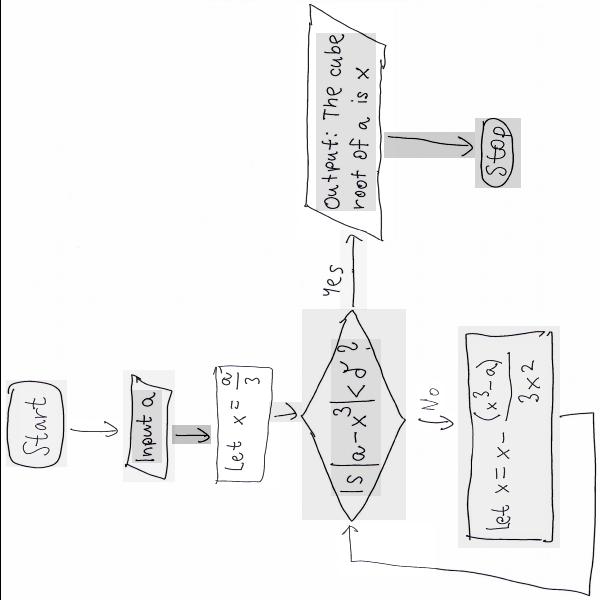 Start
Input a
Let x = a/3
Is |a-x³| < δ?
Yes
Output: The cube
root of a is x
Stop
No
let x = x - (x³-a)/3x2